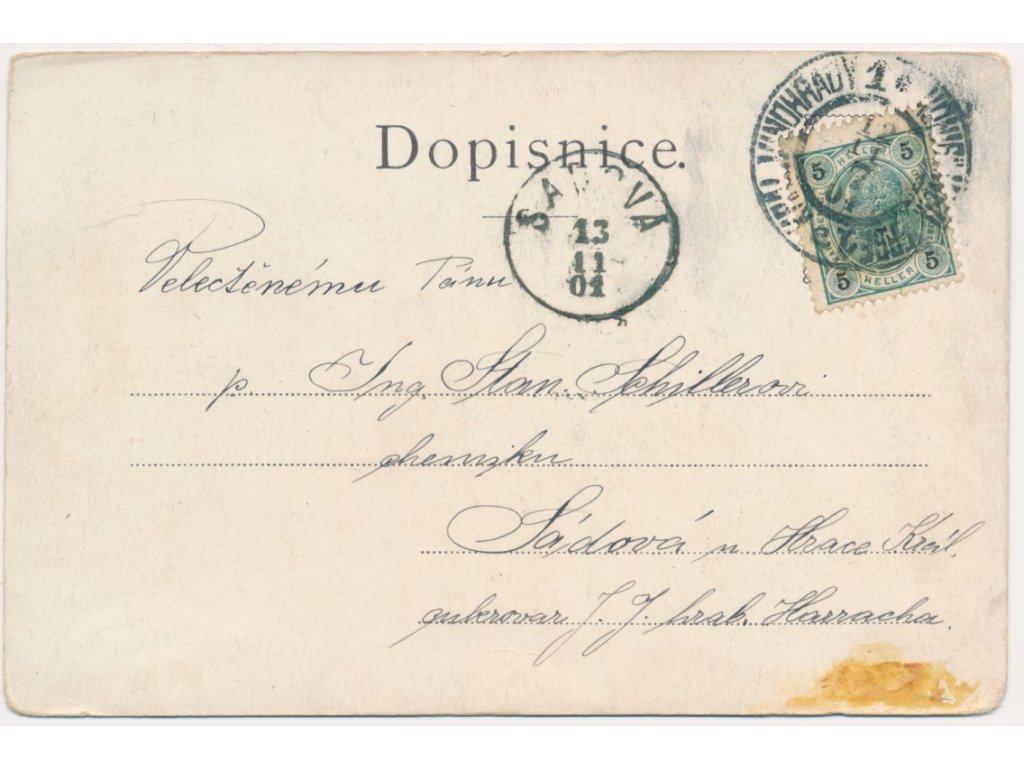 Dopisnice.
SADOVA
13
11
01
5 HELLER 5
5 HELLER 5
VINOHRADY 1
12
Velectěnému Pánu
p. Ing. Stan. Schillerovi
chemiku
Sádová u Hrace Král.
cukrovar J. J. hrab. Harracha.